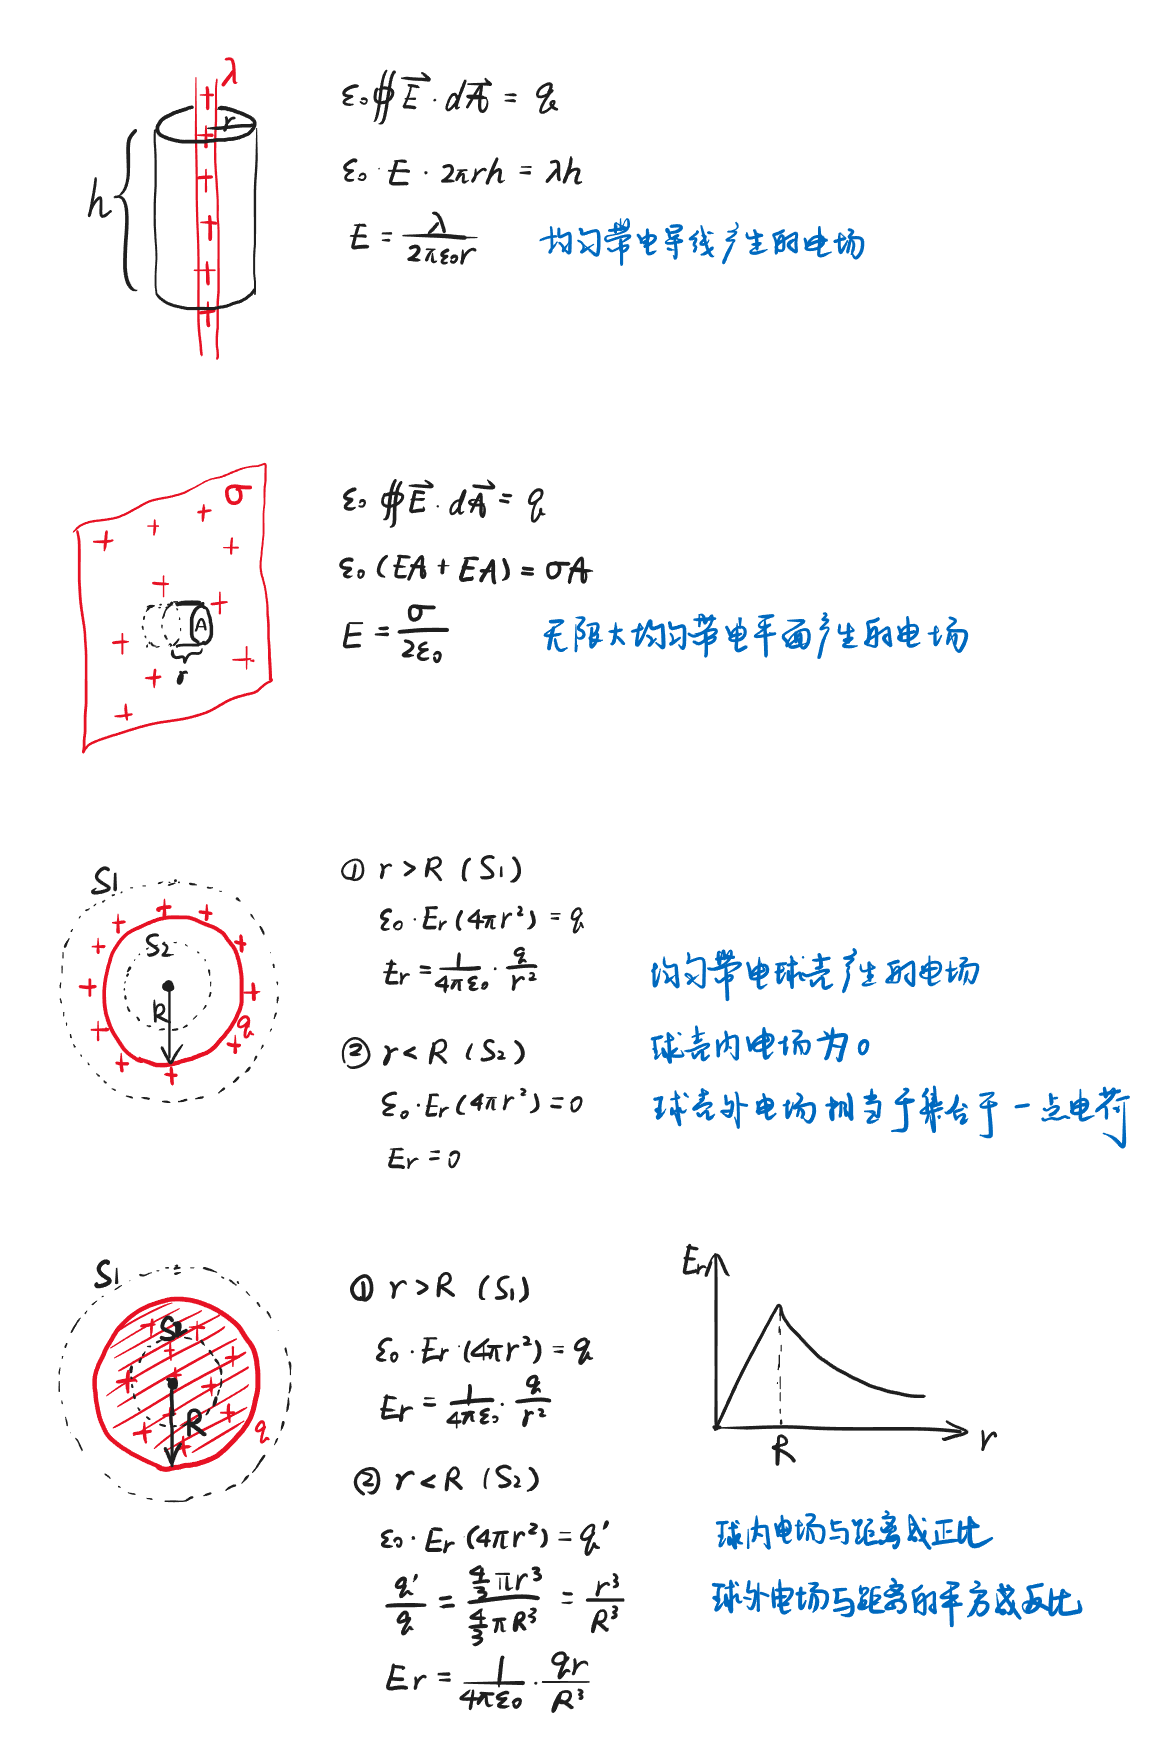 λ
r
h
ε₀∯E⃗·dA⃗ = q
ε₀·E·2πrh = λh
E = λ/2πε₀r 均匀带电导线产生的电场
σ
A
r
ε₀∯E⃗·dA⃗ = q
ε₀(EA + EA) = σA
E = σ/2ε₀ 无限大均匀带电平面产生的电场
S₁
S₂
R
q
① r > R (S₁)
ε₀·Er(4πr²) = q
Er = 1/4πε₀ · q/r²
② r < R (S₂)
ε₀·Er(4πr²) = 0
Er = 0
均匀带电球壳产生的电场
球壳内电场为0
球壳外电场相当于集合于一点电荷
S₁
S₂
R
q
① r > R (S₁)
ε₀·Er·(4πr²) = q
Er = 1/4πε₀ · q/r²
② r < R (S₂)
ε₀·Er·(4πr²) = q'
q'/q = 4/3 πr³ / 4/3 πR³ = r³/R³
Er = 1/4πε₀ · qr/R³
Er
R
r
球内电场与距离成正比
球外电场与距离的平方成反比